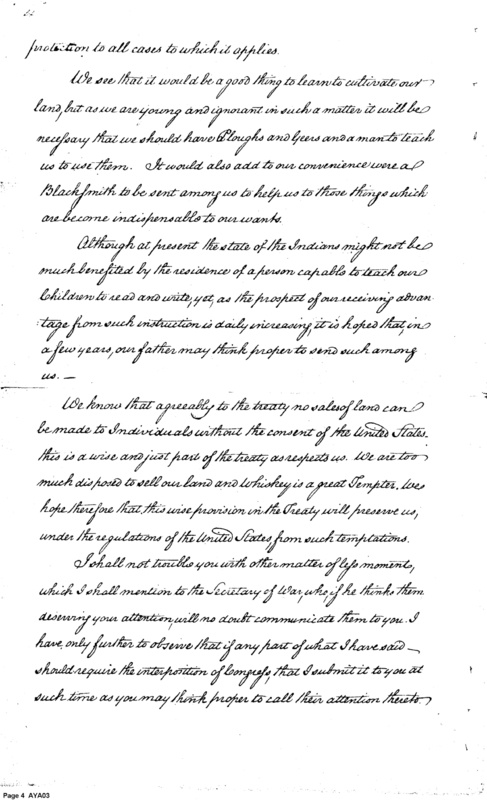 protection to all cases to which it applies.
We see that it would be a good thing to learn to cultivate our
land, but as we are young and ignorant in such a matter it will be
necessary that we should have Ploughs and Geers and a man to teach
us to use them. It would also add to our convenience were a
BlackSmith to be sent among us to help us to those things which
are become indispensable to our wants.
Although at present the state of the Indians might not be
much benefited by the residence of a person capable to teach our
Children to read and write, yet, as the prospect of our receiving advan-
tage from such instruction is daily increasing, it is hoped that, in
a few years, our father may think proper to send such among
us. —
We know that agreeably to the treaty no sales of land can
be made to Individuals without the consent of the United States.
this is a wise and just part of the treaty as respects us. We are too
much disposed to sell our land and Whiskey is a great Tempter. We
hope therefore that, this wise provision in the Treaty will preserve us,
under the regulations of the United States, from such temptations.
I shall not trouble you with other matter of less moment,
which I shall mention to the Secretary of War, who, if he thinks them
deserving your attention will no doubt communicate them to you. I
have, only further to observe that if any part of what I have said —
should require the interposition of Congress, that I submit it to you at
such time as you may think proper to call their attention thereto.
Page 4 AYA03